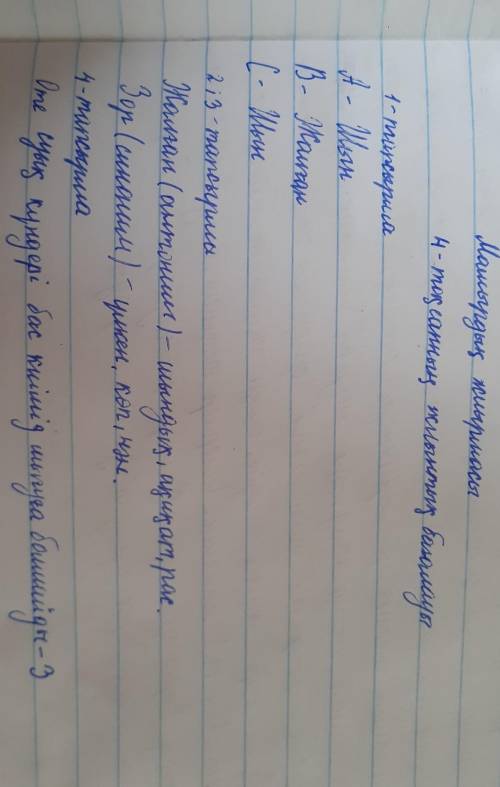 Мамырдың жиырмасы
4-тоқсанның жиынтық бағалауы
1-тапсырма
A - Шын
B - Жалған
C - Шын
2,3-тапсырма
Жалған (антоним) - шындық, ақиқат, рас.
Зор (синоним) - үлкен, көп, нән.
4-тапсырма
Өте суық күндері бас киімсіз шығуға болмайды - 3